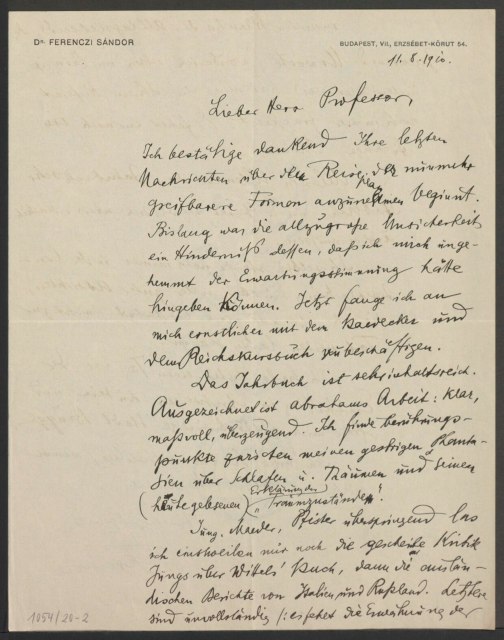 Dr. FERENCZI SÁNDOR
BUDAPEST, VII., ERZSÉBET-KÖRUT 54.
11. 8. 1910.
Lieber Herr Professor,
Ich bestätige dankend Ihre letzten
Nachrichten über den Reiseplan, der nunmehr
greifbarere Formen anzunehmen beginnt.
Bislang war die allzugroße Unsicherheit
ein Hinderniß dessen, daß ich mich unge-
hemmt der Erwartungsstimmung hätte
hingeben können. Jetzt fange ich an
mich ernstlicher mit dem Baedecker und
dem Reichskursbuch zu beschäftigen.
Das Jahrbuch ist sehr inhaltsreich.
Ausgezeichnet ist Abrahams Arbeit: klar,
maßvoll, überzeugend. Ich finde berührungs-
punkte zwischen meinen gestrigen Phanta-
sien über Schlafen u. Träumen und seinen
(heute gelesenen) Erklärungen der „Traumzustände“.
Jung, Maeder, Pfister überspringend las
ich einstweilen nur noch die gescheite Kritik
Jungs über Wittels' Buch, dann die auslän-
dischen Berichte von Italien und Rußland. Letztere
sind unvollständig /: es fehlt die Erwähnung der
1054/20-2